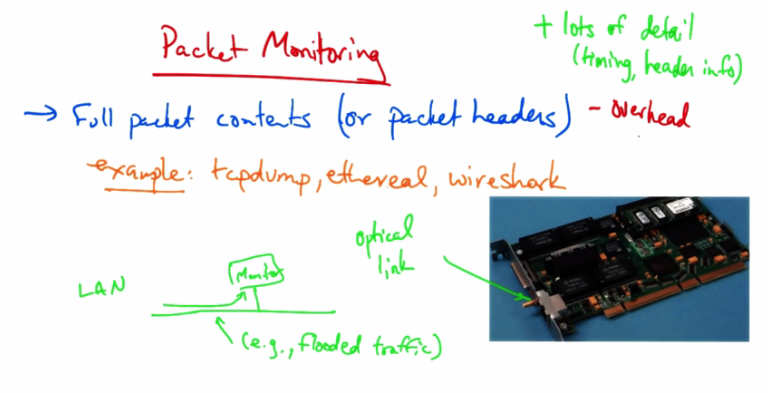 Packet Monitoring
+ lots of detail
(timing, header info)
→ Full packet contents (or packet headers) - overhead
example: tcpdump, ethereal, wireshark
optical
link
Monitor
LAN
(e.g., flooded traffic)